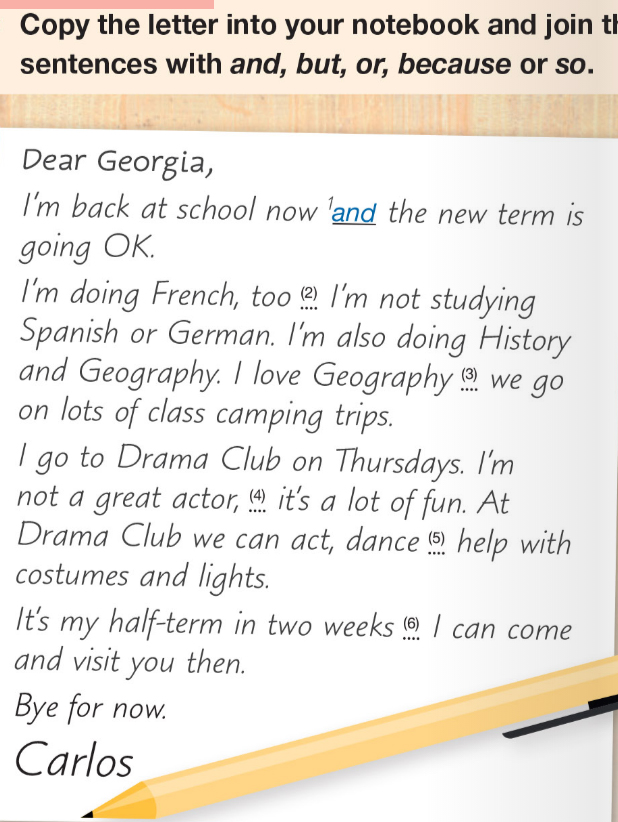 Copy the letter into your notebook and join
sentences with and, but, or, because or so.
Dear Georgia,
I'm back at school now ¹and the new term is
going OK.
I'm doing French, too (2) I'm not studying
Spanish or German. I'm also doing History
and Geography. I love Geography (3) we go
on lots of class camping trips.
I go to Drama Club on Thursdays. I'm
not a great actor, (4) it's a lot of fun. At
Drama Club we can act, dance (5) help with
costumes and lights.
It's my half-term in two weeks (6) I can come
and visit you then.
Bye for now.
Carlos